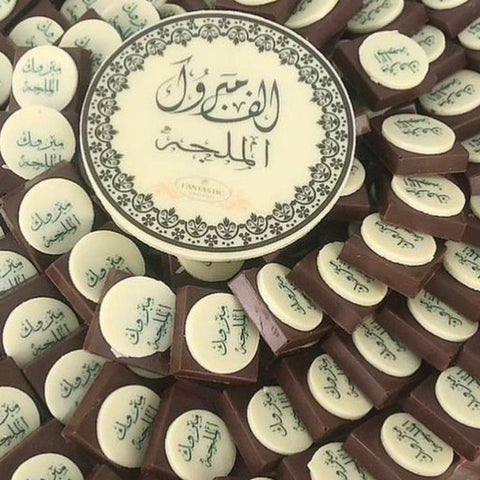 الف مبروك
الملجه
FANTASTIC
مبروك
الملجه